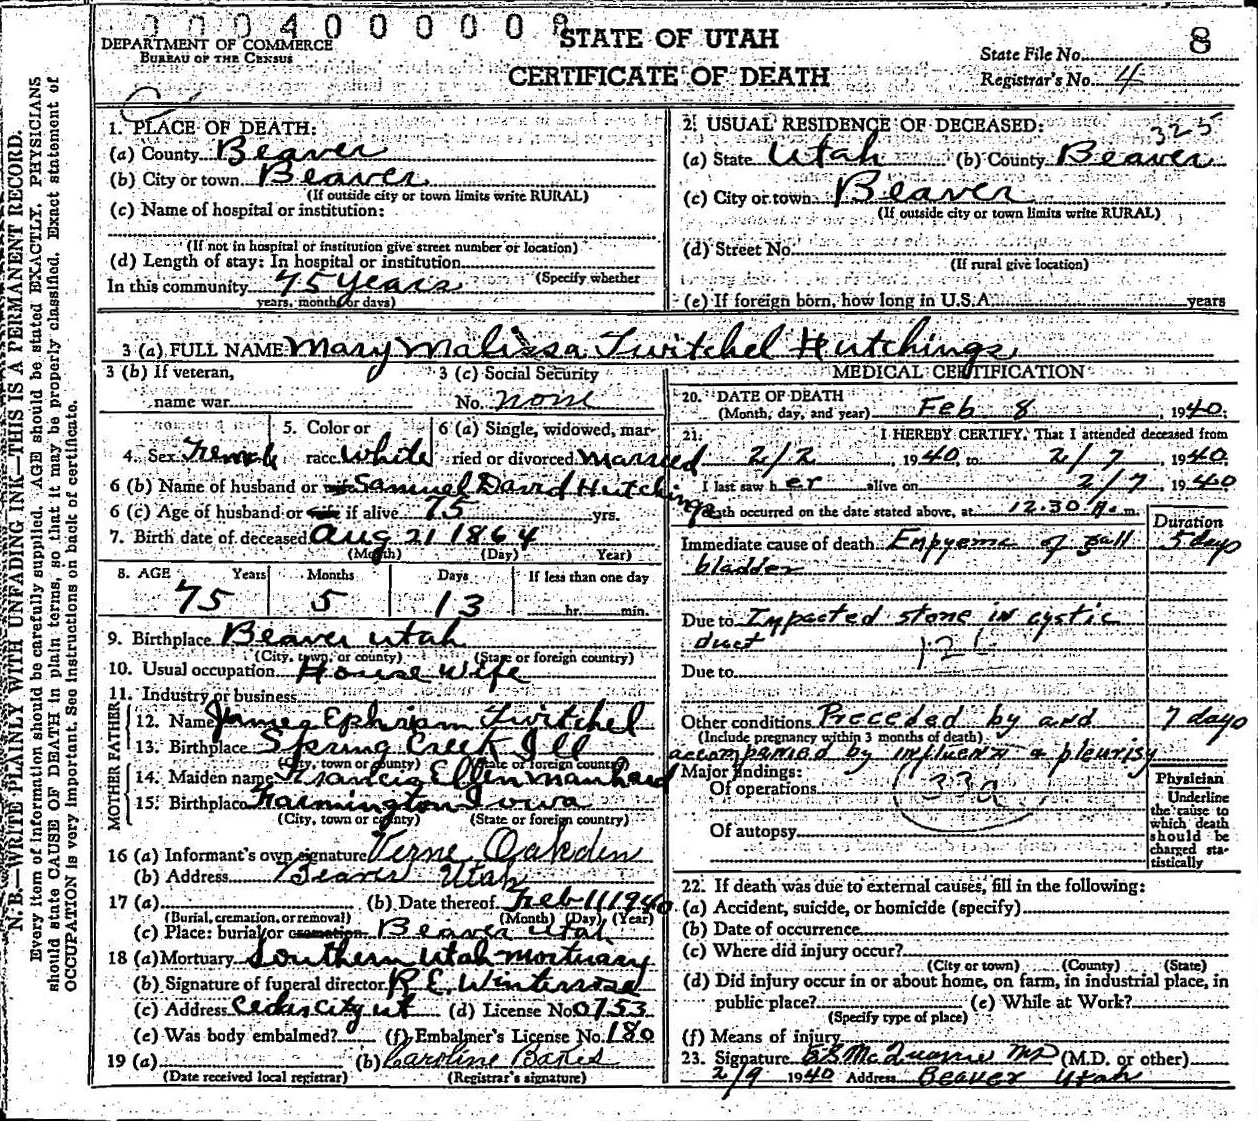 0 0 0 4 0 0 0 0 0 8
DEPARTMENT OF COMMERCE
BUREAU OF THE CENSUS
STATE OF UTAH
CERTIFICATE OF DEATH
State File No. 8
Registrar's No. 4
N. B.—WRITE PLAINLY WITH UNFADING INK—THIS IS A PERMANENT RECORD.
Every item of information should be carefully supplied. AGE should be stated EXACTLY. PHYSICIANS
should state CAUSE OF DEATH in plain terms, so that it may be properly classified. Exact statement of
OCCUPATION is very important. See instructions on back of certificate.
1. PLACE OF DEATH:
(a) County Beaver
(b) City or town Beaver
(If outside city or town limits write RURAL)
(c) Name of hospital or institution:
(If not in hospital or institution give street number or location)
(d) Length of stay: In hospital or institution
(Specify whether
In this community 75 years
years, months or days)
2. USUAL RESIDENCE OF DECEASED:
325
(a) State Utah (b) County Beaver
(c) City or town Beaver
(If outside city or town limits write RURAL)
(d) Street No.
(If rural give location)
(e) If foreign born, how long in U.S.A. years
3 (a) FULL NAME Mary Malissa Twitchel Hutchings
3 (b) If veteran,
name war
3 (c) Social Security
No. none
4. Sex Female
5. Color or
race White
6 (a) Single, widowed, mar-
ried or divorced Married
6 (b) Name of husband or wife Samuel David Hutchings
6 (c) Age of husband or wife if alive 75 yrs.
7. Birth date of deceased Aug 21 1864
(Month) (Day) Year)
8. AGE Years Months Days If less than one day
75 5 13 hr. min.
9. Birthplace Beaver Utah
(City, town, or county) (State or foreign country)
10. Usual occupation House Wife
11. Industry or business
FATHER
12. Name James Ephriam Twitchel
13. Birthplace Spring Creek Ill
(City, town or county) (State or foreign country)
MOTHER
14. Maiden name Francis Ellen Manhard
15. Birthplace Farmington Iowa
(City, town or county) (State or foreign country)
16 (a) Informant's own signature Verne Oakden
(b) Address Beaver Utah
17 (a) (b) Date thereof Feb 11 1940
(Burial, cremation, or removal) (Month) (Day), (Year)
(c) Place: burial or cremation Beaver Utah
18 (a) Mortuary Southern Utah Mortuary
(b) Signature of funeral director R. E. Winterrose
(c) Address Cedar City Ut (d) License No. 0753
(e) Was body embalmed? (f) Embalmer's License No. 180
19 (a) (b) Caroline Bakes
(Date received local registrar) (Registrar's signature)
MEDICAL CERTIFICATION
20. DATE OF DEATH
(Month, day, and year) Feb 8, 1940.
21. I HEREBY CERTIFY, That I attended deceased from
2/2, 1940, to 2/7, 1940.
I last saw her alive on 2/7, 1940
death occurred on the date stated above, at 12:30 A. m.
Duration
Immediate cause of death Empyema of gall 5 days
bladder
Due to Impacted stone in cystic
duct
Due to
Other conditions Preceded by and 7 days
(Include pregnancy within 3 months of death)
accompanied by influenza & pleurisy
Major findings:
Of operations 33a
Of autopsy
Physician
Underline
the cause to
which death
should be
charged sta-
tistically
22. If death was due to external causes, fill in the following:
(a) Accident, suicide, or homicide (specify)
(b) Date of occurrence
(c) Where did injury occur?
(City or town) (County) (State)
(d) Did injury occur in or about home, on farm, in industrial place, in
public place? (e) While at Work?
(Specify type of place)
(f) Means of injury
23. Signature McQuarrie MD (M.D. or other)
2/9 1940 Address Beaver Utah